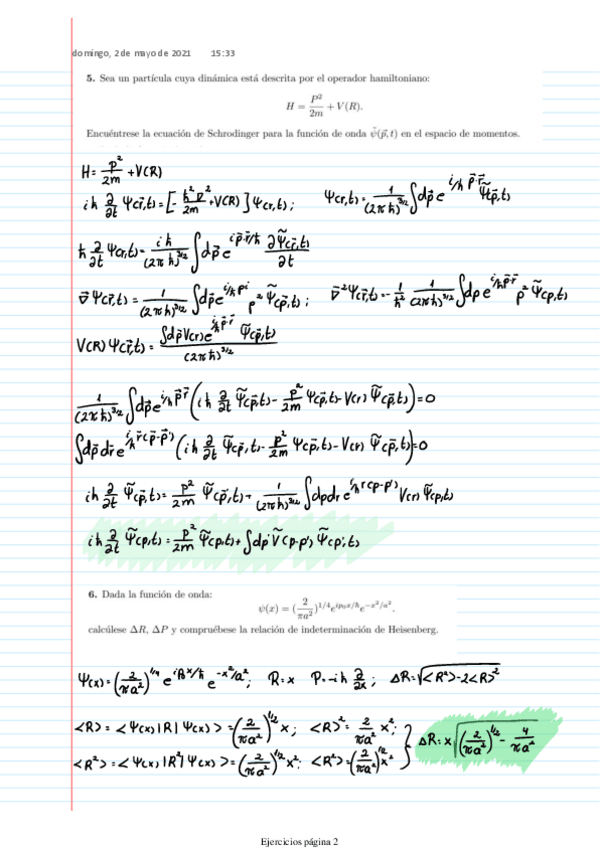 domingo, 2 de mayo de 2021 15:33
5. Sea un partícula cuya dinámica está descrita por el operador hamiltoniano:
H = P²/2m + V(R).
Encuéntrese la ecuación de Schrodinger para la función de onda ψ̃(p⃗, t) en el espacio de momentos.
H = p²/2m + V(R)
iħ ∂/∂t Ψ(r⃗,t) = [-ħ²p²/2m + V(R)] Ψ(r,t) ; Ψ(r,t) = 1/(2πħ)^3/2 ∫dp⃗ e^{i/ħ p⃗·r⃗} Ψ̃(p⃗,t)
ħ ∂/∂t Ψ(r,t) = iħ/(2πħ)^3/2 ∫dp⃗ e^{i p⃗·r⃗/ħ} ∂Ψ̃(r⃗,t)/∂t
∇⃗Ψ(r⃗,t) = 1/(2πħ)^3/2 ∫dp⃗ e^{i/ħ p⃗r⃗} p² Ψ̃(p⃗,t) ; ∇⃗²Ψ(r⃗,t) = -1/ħ² 1/(2πħ)^3/2 ∫dp e^{i/ħ p⃗·r⃗} p² Ψ̃(p,t)
V(R) Ψ(r⃗,t) = ∫dp⃗ V(r) e^{i/ħ p⃗·r⃗} Ψ̃(p⃗,t) / (2πħ)^3/2
1/(2πħ)^3/2 ∫dp⃗ e^{i/ħ p⃗r⃗} (iħ ∂/∂t Ψ̃(p⃗,t) - p²/2m Ψ(p⃗,t) - V(r) Ψ̃(p⃗,t)) = 0
∫dp⃗ dr⃗ e^{i/ħ r⃗(p⃗-p⃗')} (iħ ∂/∂t Ψ̃(p⃗,t) - p²/2m Ψ(p⃗,t) - V(r) Ψ̃(p⃗,t)) = 0
iħ ∂/∂t Ψ̃(p⃗,t) = p²/2m Ψ̃(p⃗,t) + 1/(2πħ)^3/2 ∫dpdr e^{i/ħ r(p-p')} V(r) Ψ̃(p,t)
iħ ∂/∂t Ψ̃(p,t) = p²/2m Ψ̃(p,t) + ∫dp' Ṽ(p-p') Ψ̃(p',t)
6. Dada la función de onda:
ψ(x) = (2/πa²)^1/4 e^{ip₀x/ħ} e^{-x²/a²}.
calcúlese ΔR, ΔP y compruébese la relación de indeterminación de Heisenberg.
Ψ(x) = (2/πa²)^1/4 e^{iP₀x/ħ} e^{-x²/a²} ; R=x P=-iħ ∂/∂x ; ΔR=√(<R²>-2<R>²)
<R> = <Ψ(x)|R|Ψ(x)> = (2/πa²)^1/2 x ; <R>² = 2/πa² x² ;
<R²> = <Ψ(x)|R²|Ψ(x)> = (2/πa²)^1/2 x² ; <R²> = (2/πa²)^1/2 x²
ΔR = x √((2/πa²)^1/2 - 4/πa²)
Ejercicios página 2